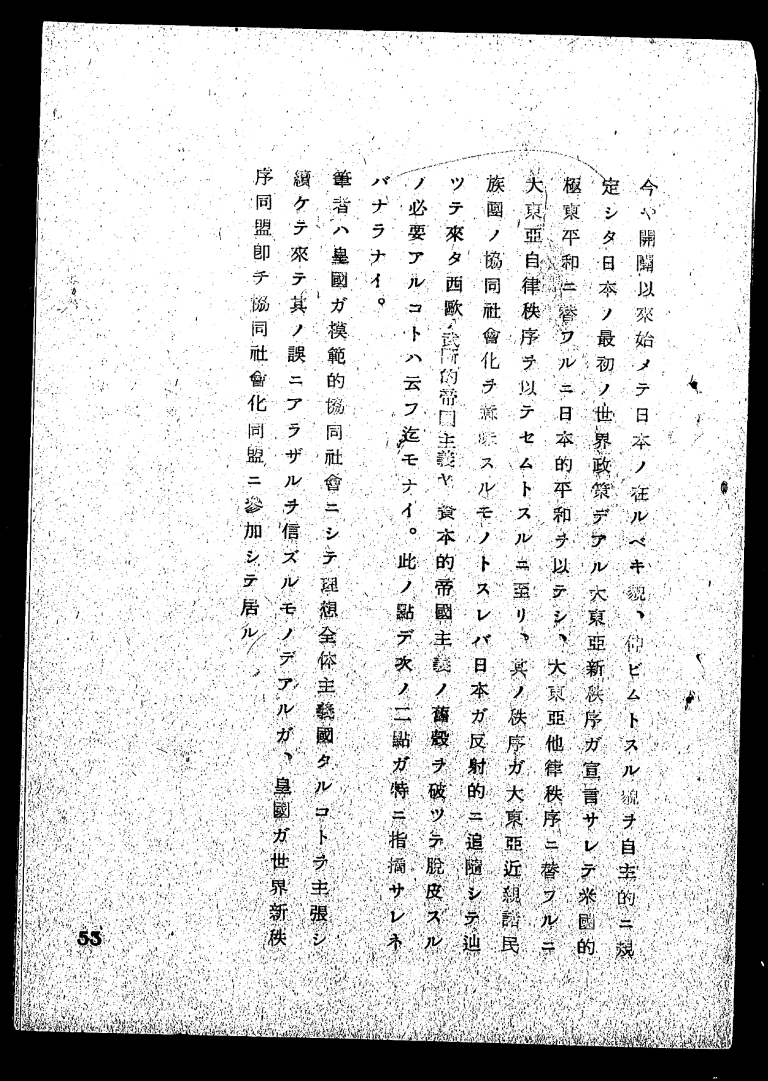 今や開闢以來始メテ日本ノ在ルベキ貌、伸ビムトスル貌ヲ自主的ニ規
定シタ日本ノ最初ノ世界政策デアル大東亞新秩序ガ宣言サレテ米國的
極東平和ニ替フルニ日本的平和ヲ以テシ、大東亞他律秩序ニ替フルニ
大東亞自律秩序ヲ以テセムトスルニ至リ、其ノ秩序ガ大東亞近親諸民
族國ノ協同社會化ヲ意味スルモノトスレバ日本ガ反射的ニ追隨シテ辿
ツテ來タ西歐ノ武斷的帝國主義ヤ資本的帝國主義ノ舊殼ヲ破ツテ脫皮スル
ノ必要アルコトハ云フ迄モナイ。此ノ點デ次ノ二點ガ特ニ指摘サレネ
バナラナイ。
筆者ハ皇國ガ模範的協同社會ニシテ理想全体主義國タルコトヲ主張シ
續ケテ來テ其ノ誤ニアラザルヲ信ズルモノデアルガ、皇國ガ世界新秩
序同盟卽チ協同社會化同盟ニ參加シテ居ル
53